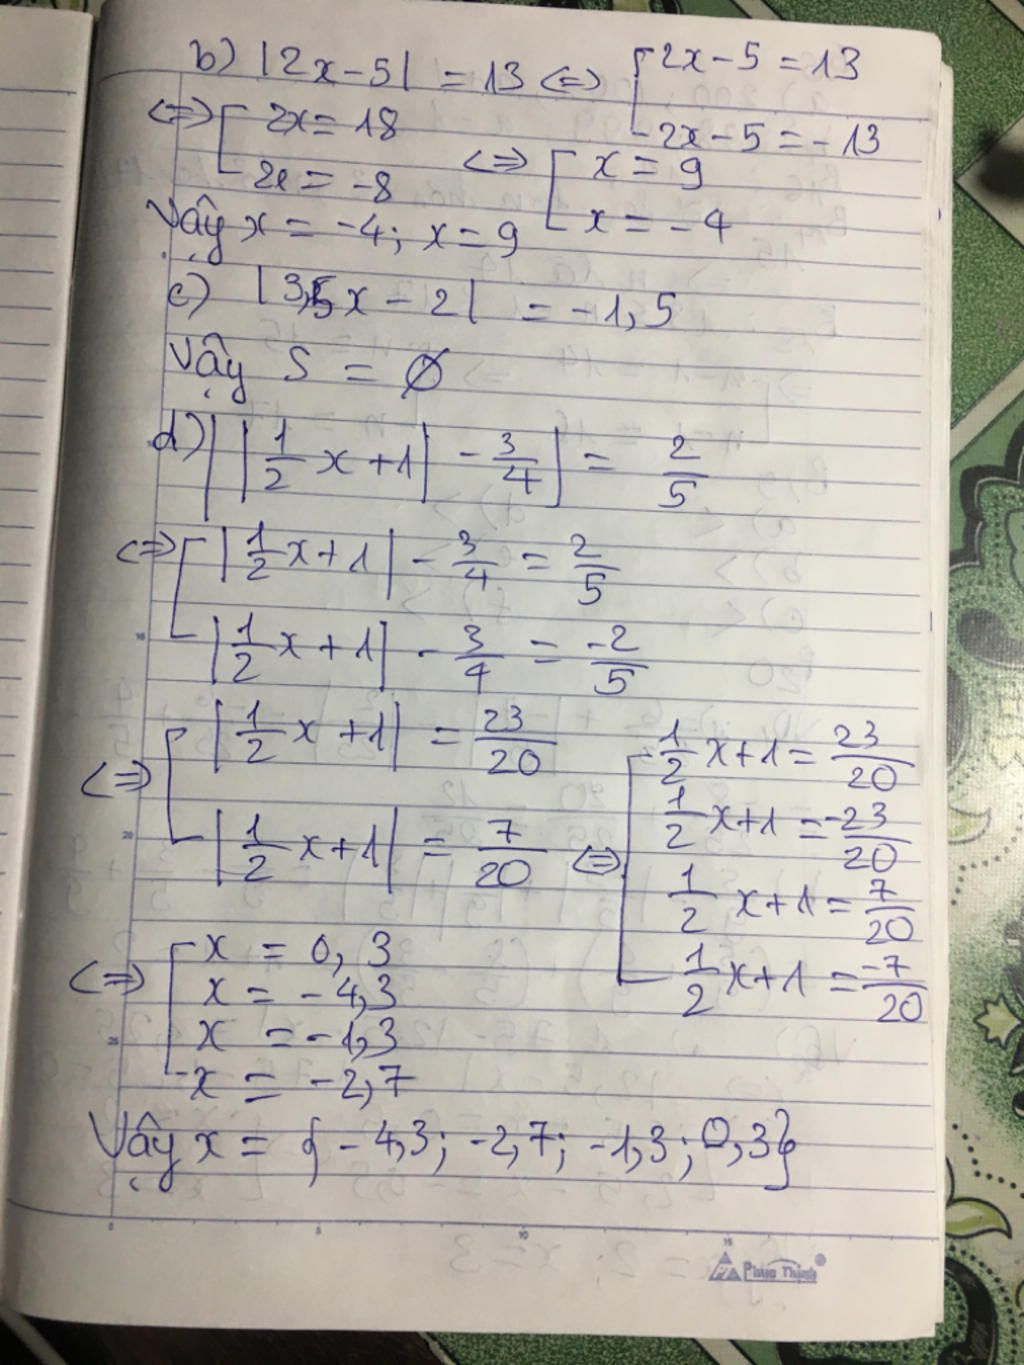 b) |2x-5| = 13 <=> [ 2x-5 = 13
-2x-5 = -13
<=> [ 2x = 18
2x = -8
<=> [ x = 9
x = -4
Vậy x = -4; x = 9
c) |3,5x - 2| = -1,5
Vậy S = Ø
d) ||1/2 x + 1| - 3/4| = 2/5
<=> [ |1/2 x + 1| - 3/4 = 2/5
|1/2 x + 1| - 3/4 = -2/5
<=> [ |1/2 x + 1| = 23/20
|1/2 x + 1| = 7/20
<=> [ 1/2 x + 1 = 23/20
1/2 x + 1 = -23/20
1/2 x + 1 = 7/20
1/2 x + 1 = -7/20
<=> [ x = 0,3
x = -4,3
x = -1,3
x = -2,7
Vậy x = { -4,3; -2,7; -1,3; 0,3}
0 5 10 15